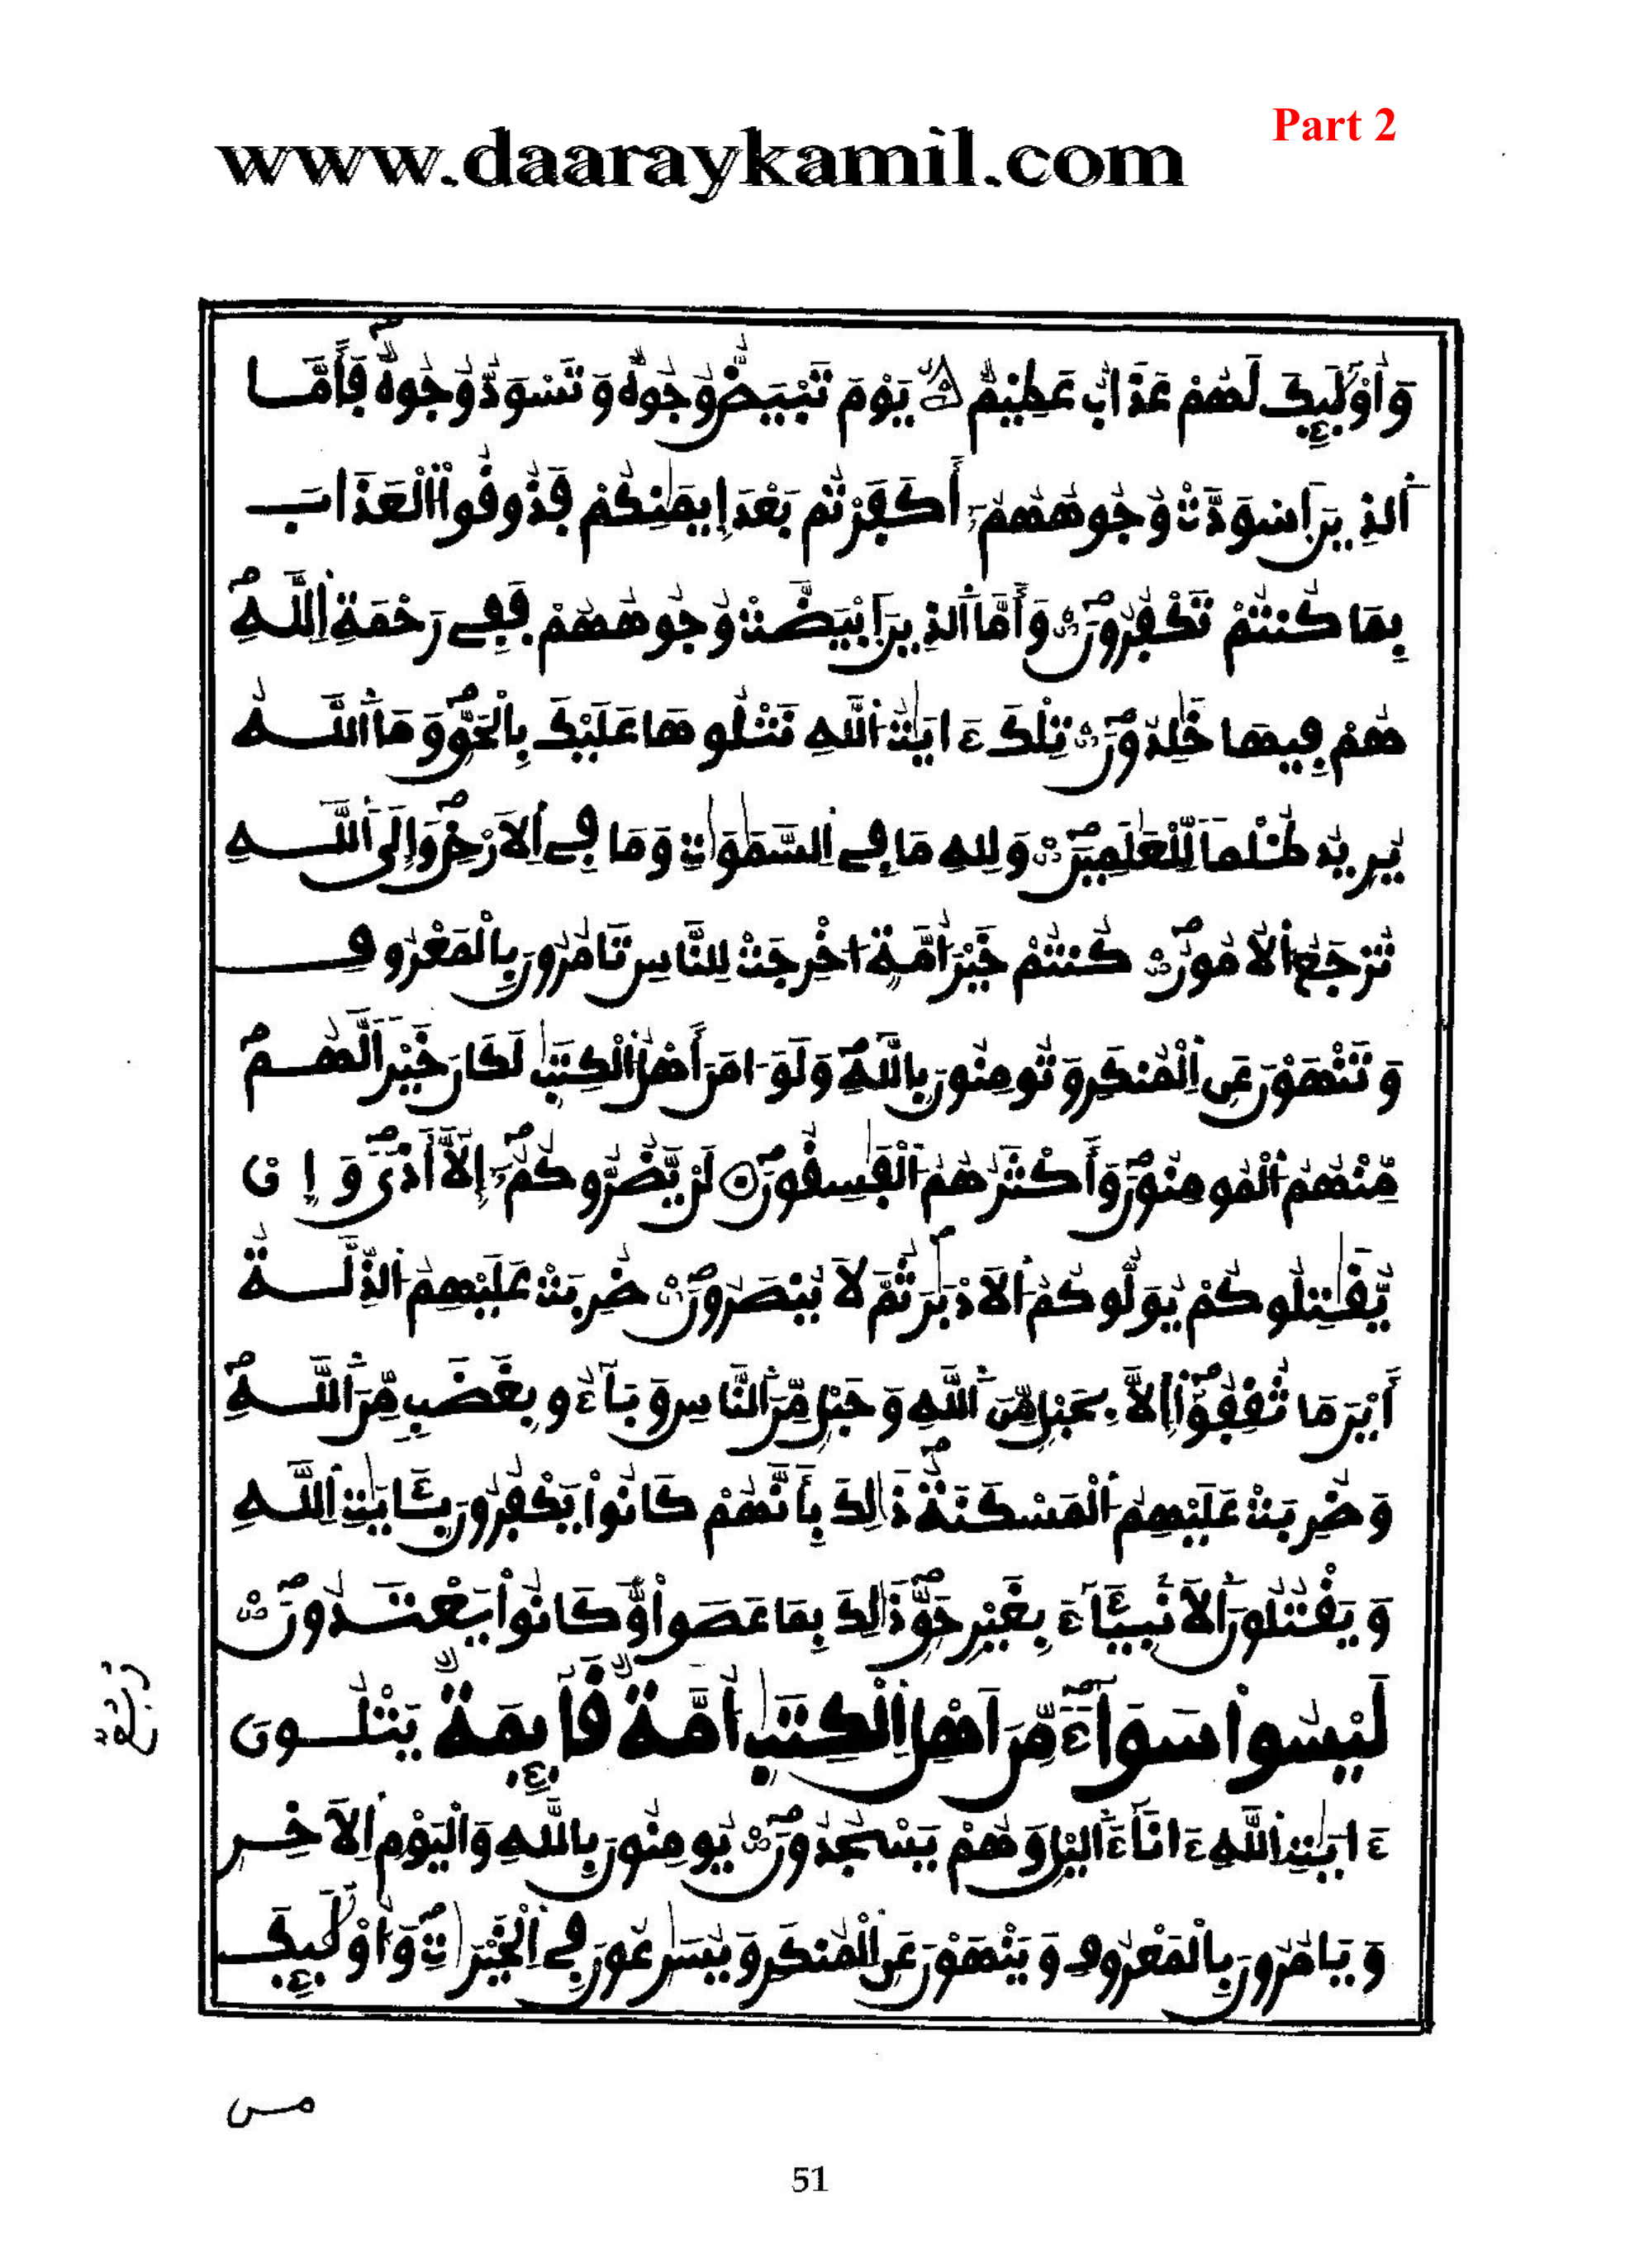 Part 2
www.daaraykamil.com
وَأُوْلَٰٓئِكَ لَهُمْ عَذَابٌ عَظِيمٌ يَوْمَ تَبْيَضُّ وُجُوهٌ وَتَسْوَدُّ وُجُوهٌ فَأَمَّا
اَلذِينَ اَسْوَدَّتْ وُجُوهُهُمُۥٓ أَكَفَرْتُم بَعْدَ إِيمَٰنِكُمْ فَذُوقُواْ اُلْعَذَابَ
بِمَا كُنتُمْ تَكْفُرُونَ وَأَمَّا اَلذِينَ اَبْيَضَّتْ وُجُوهُهُمْ فَفِے رَحْمَةِ اِللَّهِ
هُمْ فِيهَا خَٰلِدُونَ تِلْكَ ءَايَٰتُ اُللَّهِ نَتْلُوهَا عَلَيْكَ بِالْحَقِّ وَمَا اَللَّهُ
يُرِيدُ ظُلْماً لِّلْعَٰلَمِينَ وَلِلهِ مَا فِے اِلسَّمَٰوَٰتِ وَمَا فِے اِلَارْضِ وَإِلَى اَللَّهِ
تُرْجَعُ اُلُامُورُ كُنتُمْ خَيْرَ أُمَّةٍ ا۟خْرِجَتْ لِلنَّاسِ تَامُرُونَ بِالْمَعْرُوفِ
وَتَنْهَوْنَ عَنِ اِلْمُنكَرِ وَتُومِنُونَ بِاللَّهِ وَلَوَ اٰمَنَ أَهْلُ اُلْكِتَٰبِ لَكَانَ خَيْراً لَّهُم
مِّنْهُمُ اُلْمُومِنُونَ وَأَكْثَرُهُمُ اُلْفَٰسِقُونَ لَنْ يَّضُرُّوكُمُۥٓ إِلَّآ أَذىً وَإِنْ
يُّقَٰتِلُوكُمْ يُوَلُّوكُمُ اُلَادْبَٰرَ ثُمَّ لَا يُنصَرُونَ ضُرِبَتْ عَلَيْهِمُ اُلذِّلَّةُ
أَيْنَ مَا ثُقِفُوٓاْ إِلَّا بِحَبْلٍ مِّنَ اَللَّهِ وَحَبْلٍ مِّنَ اَلنَّاسِ وَبَآءُو بِغَضَبٍ مِّنَ اَللَّهِ
وَضُرِبَتْ عَلَيْهِمُ اُلْمَسْكَنَةُ ذَٰلِكَ بِأَنَّهُمْ كَانُواْ يَكْفُرُونَ بِـَٔايَٰتِ اِللَّهِ
وَيَقْتُلُونَ اَلَانۢبِيَآءَ بِغَيْرِ حَقٍّ ذَٰلِكَ بِمَا عَصَواْ وَّكَانُواْ يَعْتَدُونَ
لَيْسُواْ سَوَآءً مِّنَ اَهْلِ اِلْكِتَٰبِ أُمَّةٌ قَآئِمَةٌ يَتْلُونَ
ءَايَٰتِ اِللَّهِ ءَانَآءَ اَليْلِ وَهُمْ يَسْجُدُونَ يُومِنُونَ بِاللَّهِ وَالْيَوْمِ اِلَاخِرِ
وَيَامُرُونَ بِالْمَعْرُوفِ وَيَنْهَوْنَ عَنِ اِلْمُنكَرِ وَيُسَٰرِعُونَ فِے اِلْخَيْرَٰتِ وَأُوْلَٰٓئِكَ
رُبُعٌ
مں
51